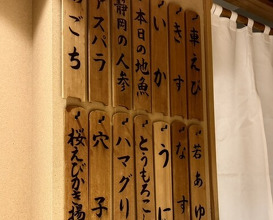 車えび
きす
いか
本日の地魚
静岡の人参
スパラ
ごち
若あゆ
なす
うに
とうもろこ
ハマグリ
穴子
桜えびかき揚